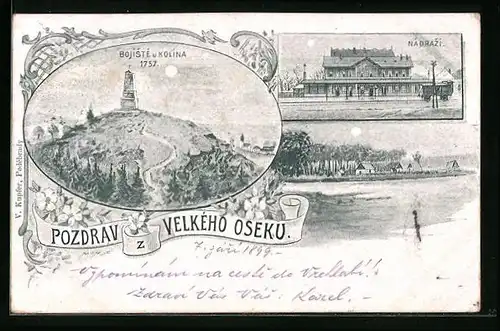 BOJIŠTĚ U KOLÍNA
1757.
NÁDRAŽÍ.
V. Kupfer, Poděbrady
POZDRAV Z VELKÉHO OSEKU.
7. září 1899.
Vzpomínám na cestě do Vrchlabí!
Zdraví Vás Váš: Karel.